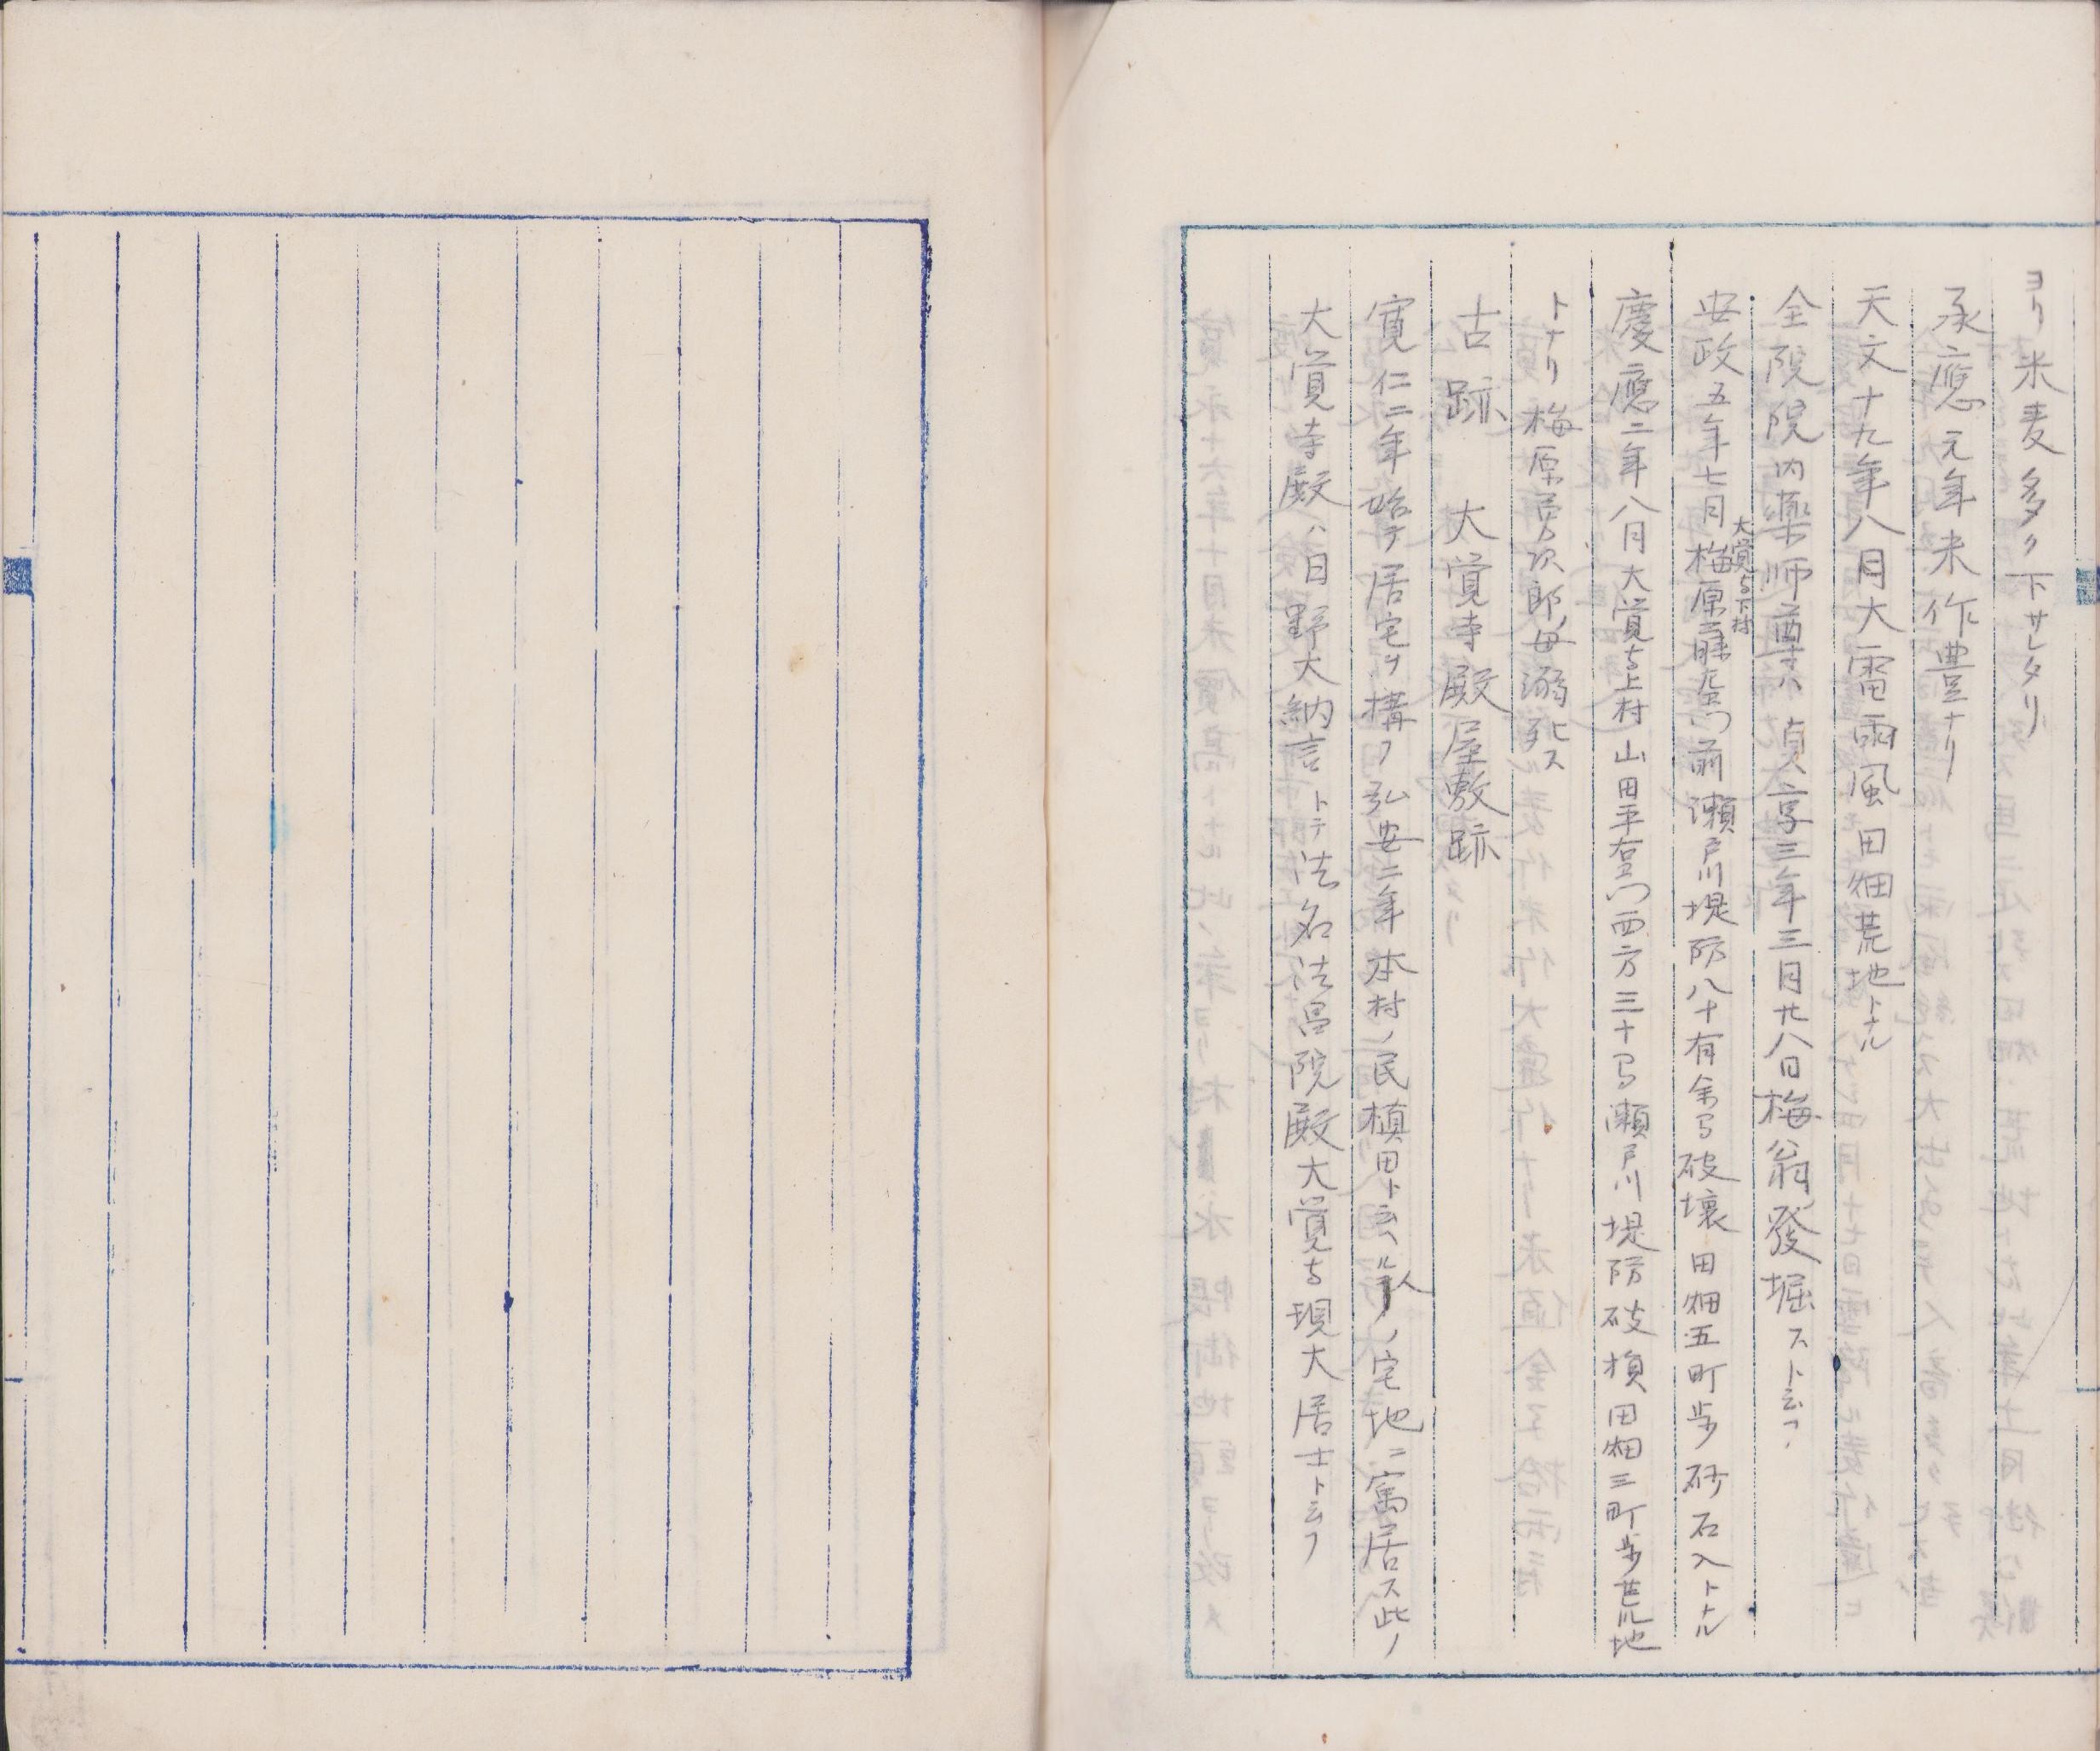 ヨリ米麦多ク下サレタリ
承應元年米作豊ナリ
天文十九年八月大雷雨風田畑荒地トナル
全院院内藥師尊ハ貞享三年三月廿八日梅翁發堀スト云フ
大覚寺下村
安政五年七月梅原 前瀬戸川堤防八十有余弓破壊田畑五町歩砂石入トナル
慶應二年八月大覚寺上村山田平右衛門西方三十弓瀬戸川堤防破損田畑三町歩荒地
トナリ梅原勇次郎母溺死ス
古跡 大覚寺殿屋敷跡
寛仁二年始テ居宅ヲ構フ弘安二年本村ノ民槙田ト云ヘル人ノ宅地ニ寓居ス此ノ
大覚寺殿ハ日野大納言トテ法名法昌院殿大覚寺現大居士ト云フ